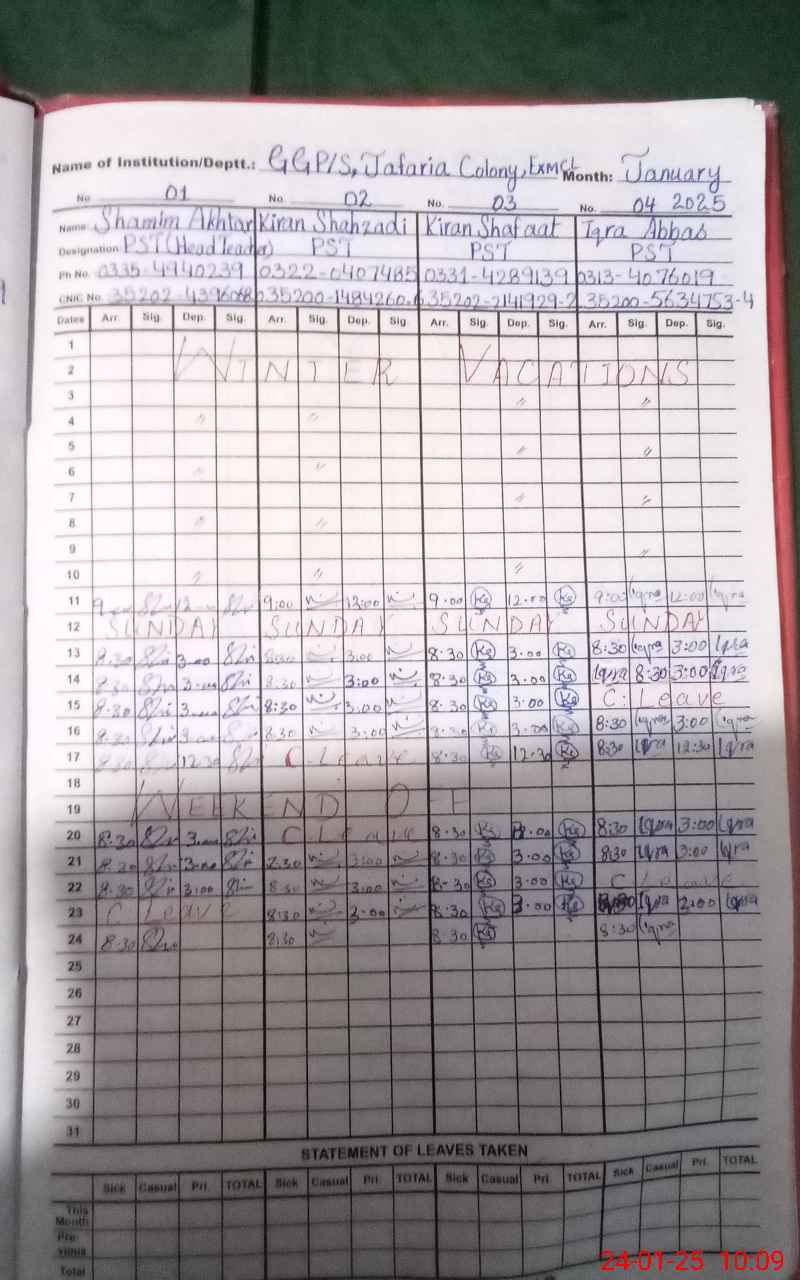 Name of Institution/Deptt.: GGP/S, Jafaria Colony, ExMCL Month: January
No 01 No 02 No. 03 No. 04 2025
Name Shamim Akhtar Kiran Shahzadi Kiran Shafaat Iqra Abbas
Designation PST (Head Teacher) PST PST PST
Ph No. 0335-4940239 0322-0407485 0331-4289139 0313-4076019
CNIC No. 35202-4396068 35200-1484260 35202-2141929-2 35200-5634753-4
Dates Arr. Sig. Dep. Sig. Arr. Sig. Dep. Sig. Arr. Sig. Dep. Sig. Arr. Sig. Dep. Sig.
1
2 WINTER VACATIONS
3 〃 〃
4 〃 〃
5 〃 〃
6 〃 〃
7 〃 〃
8 〃 〃
9 〃
10 〃 〃 〃
11 9:00 12:00 9.00 Ks 12.00 Ks 9:00 Iqra 12:00 Iqra
12 SUNDAY SUNDAY SUNDAY SUNDAY
13 8.30 3.00 3.00 8.30 Ks 3.00 Ks 8:30 Iqra 3:00 Iqra
14 8.30 3.00 8.30 3:00 8.30 Ks 3.00 Ks Iqra 8:30 3:00 Iqra
15 8.30 3.00 8:30 3:00 8.30 Ks 3.00 Ks C. Leave
16 8.30 3.00 8.30 3:00 8.30 Ks 3.00 Ks 8:30 Iqra 3:00 Iqra
17 8.30 12.30 C. Leave 8.30 Ks 12.30 Ks 8:30 Iqra 12:30 Iqra
18
19 WEEKEND OFF
20 8.30 3.00 C. Leave 8.30 Ks 3.00 Ks 8:30 Iqra 3:00 Iqra
21 8.30 3.00 3:00 8.30 Ks 3.00 Ks 8:30 Iqra 3:00 Iqra
22 8.30 3.00 8.30 3:00 8.30 Ks 3.00 Ks C Leave
23 C. Leave 8:30 3.00 8.30 Ks 3.00 Ks Iqra 2:00 Iqra
24 8.30 8:30 8.30 Ks 8:30 Iqra
25
26
27
28
29
30
31
STATEMENT OF LEAVES TAKEN
Sick Casual Pri. TOTAL Sick Casual Pri. TOTAL Sick Casual Pri TOTAL Sick Casual Pri. TOTAL
This Month
Pre-vious
Total
24-01-25 10:09